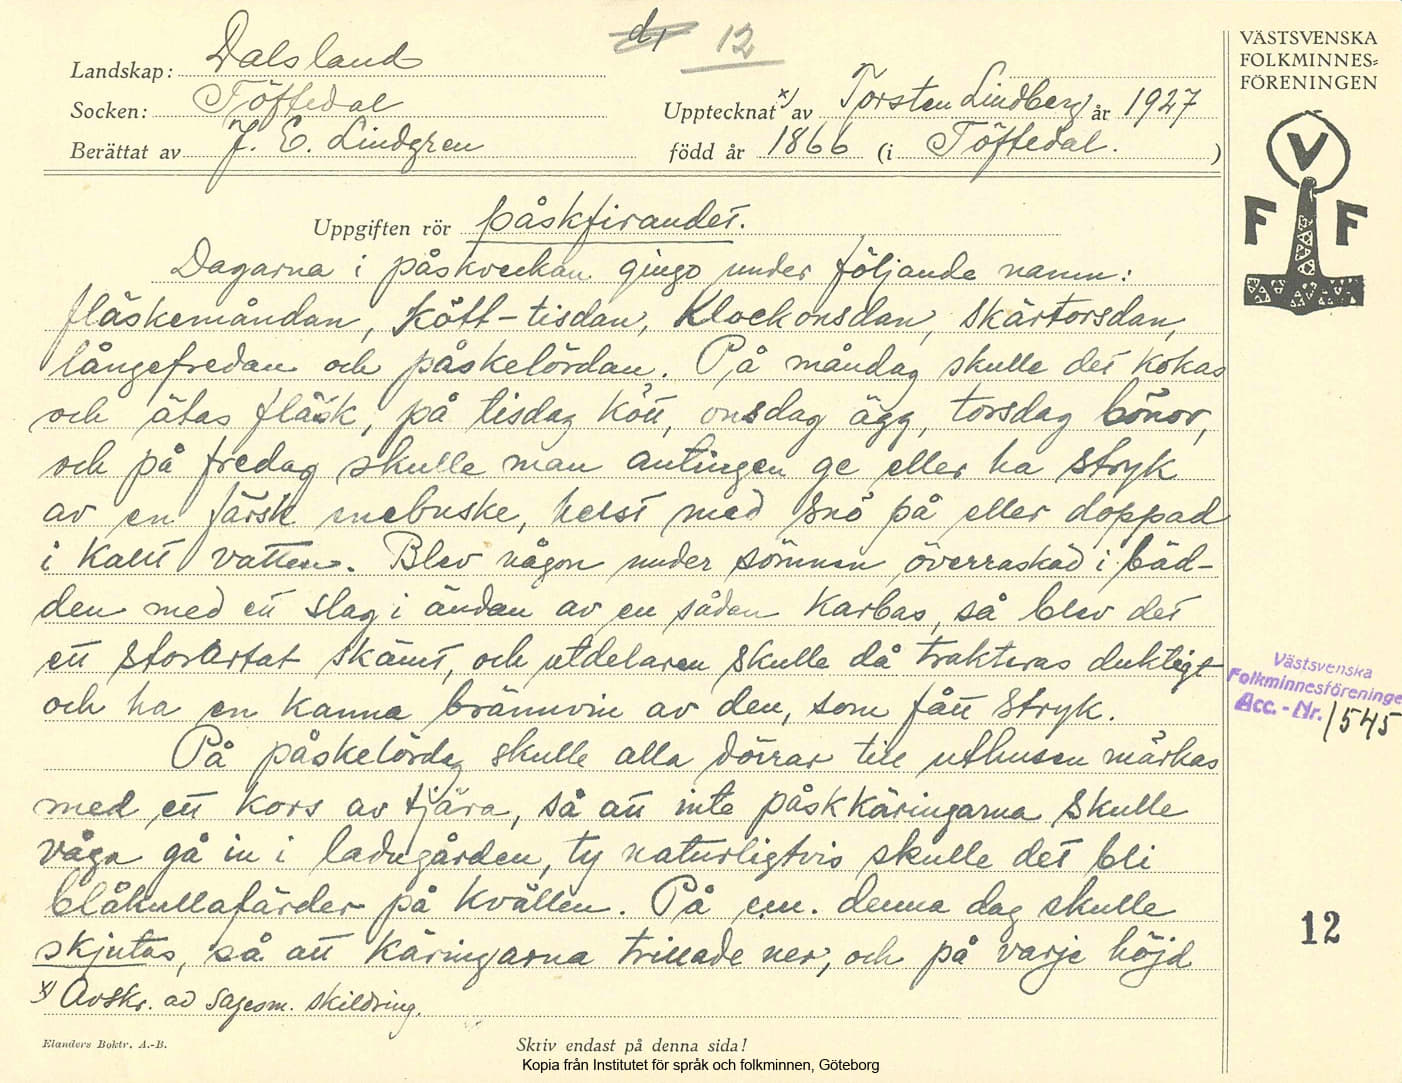 d, 12
Landskap: Dalsland
Socken: Töftedal
Upptecknat x) av Torsten Lindberg år 1927
Berättat av J. E. Lindgren född år 1866 (i Töftedal.)
VÄSTSVENSKA
FOLKMINNES=
FÖRENINGEN
V
F F
Uppgiften rör påskfirandet.
Dagarna i påskveckan gingo under följande namn:
fläskemåndan, kött-tisdan, Klockonsdan, skärtorsdan,
långefredan och påskelördan. På måndag skulle det kokas
och ätas fläsk, på tisdag kött, onsdag ägg, torsdag bönor,
och på fredag skulle man antingen ge eller ha stryk
av en färsk enebuske, helst med snö på eller doppad
i kallt vatten. Blev någon under sömnen överraskad i bäd-
den med ett slag i ändan av en sådan karbas, så blev det
ett storartat skämt, och utdelaren skulle då trakteras duktigt
och ha en kanna brännvin av den, som fått stryk.
På påskelörda skulle alla dörrar till uthusen märkas
med ett kors av tjära, så att inte påskkäringarna skulle
våga gå in i ladugården, ty naturligtvis skulle det bli
blåkullafärder på kvällen. På e.m. denna dag skulle
skjutas, så att käringarna trillade ner, och på varje höjd
x) Avskr. av sagesm. skildring.
Västsvenska
Folkminnesföreninge
Acc.-Nr. 1545
12
Elanders Boktr. A.-B.
Skriv endast på denna sida!
Kopia från Institutet för språk och folkminnen, Göteborg